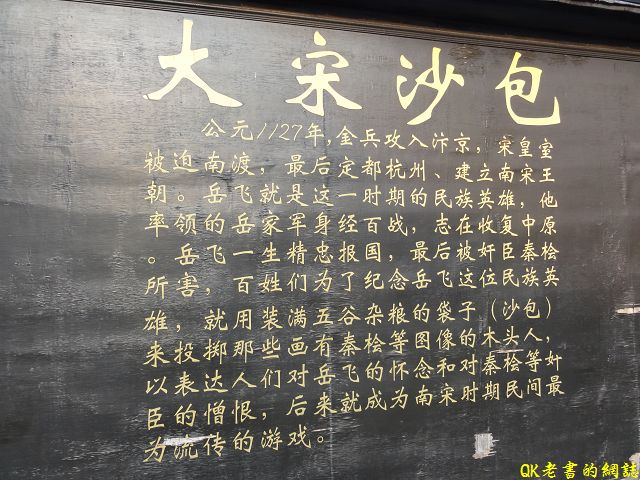 大宋沙包
公元1127年,金兵攻入汴京,宋皇室
被迫南渡,最后定都杭州、建立南宋王
朝。岳飞就是这一时期的民族英雄,他
率领的岳家军身经百战,志在收复中原
。岳飞一生精忠报国,最后被奸臣秦桧
所害,百姓们为了纪念岳飞这位民族英
雄,就用装满五谷杂粮的袋子(沙包)
来投掷那些画有秦桧等图像的木头人,
以表达人们对岳飞的怀念和对秦桧等奸
臣的憎恨,后来就成为南宋时期民间最
为流传的游戏。
QK老書的網誌